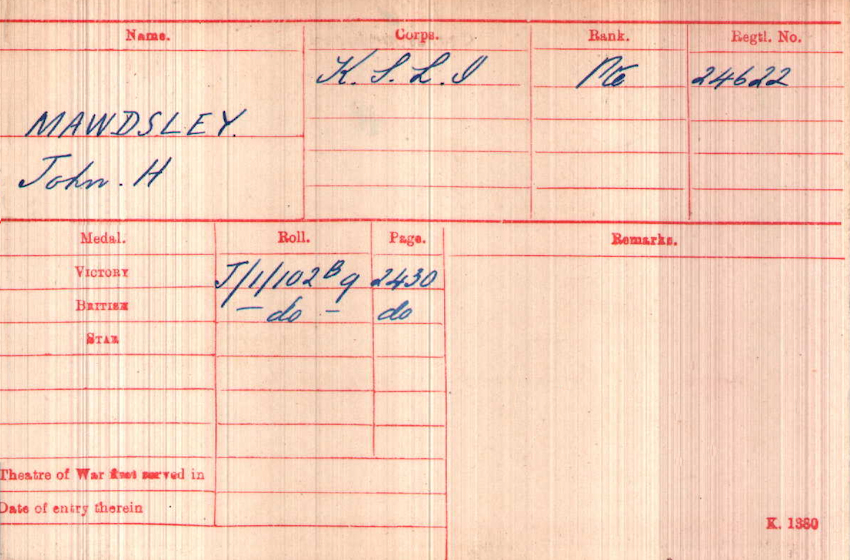 Name. Corps. Rank. Regtl. No.
K. S. L. I Pte 24622
MAWDSLEY.
John. H
Medal. Roll. Page. Remarks.
VICTORY J/1/102 B9 2430
BRITISH – do – do
STAR
Theatre of War first served in
Date of entry therein
K. 1380